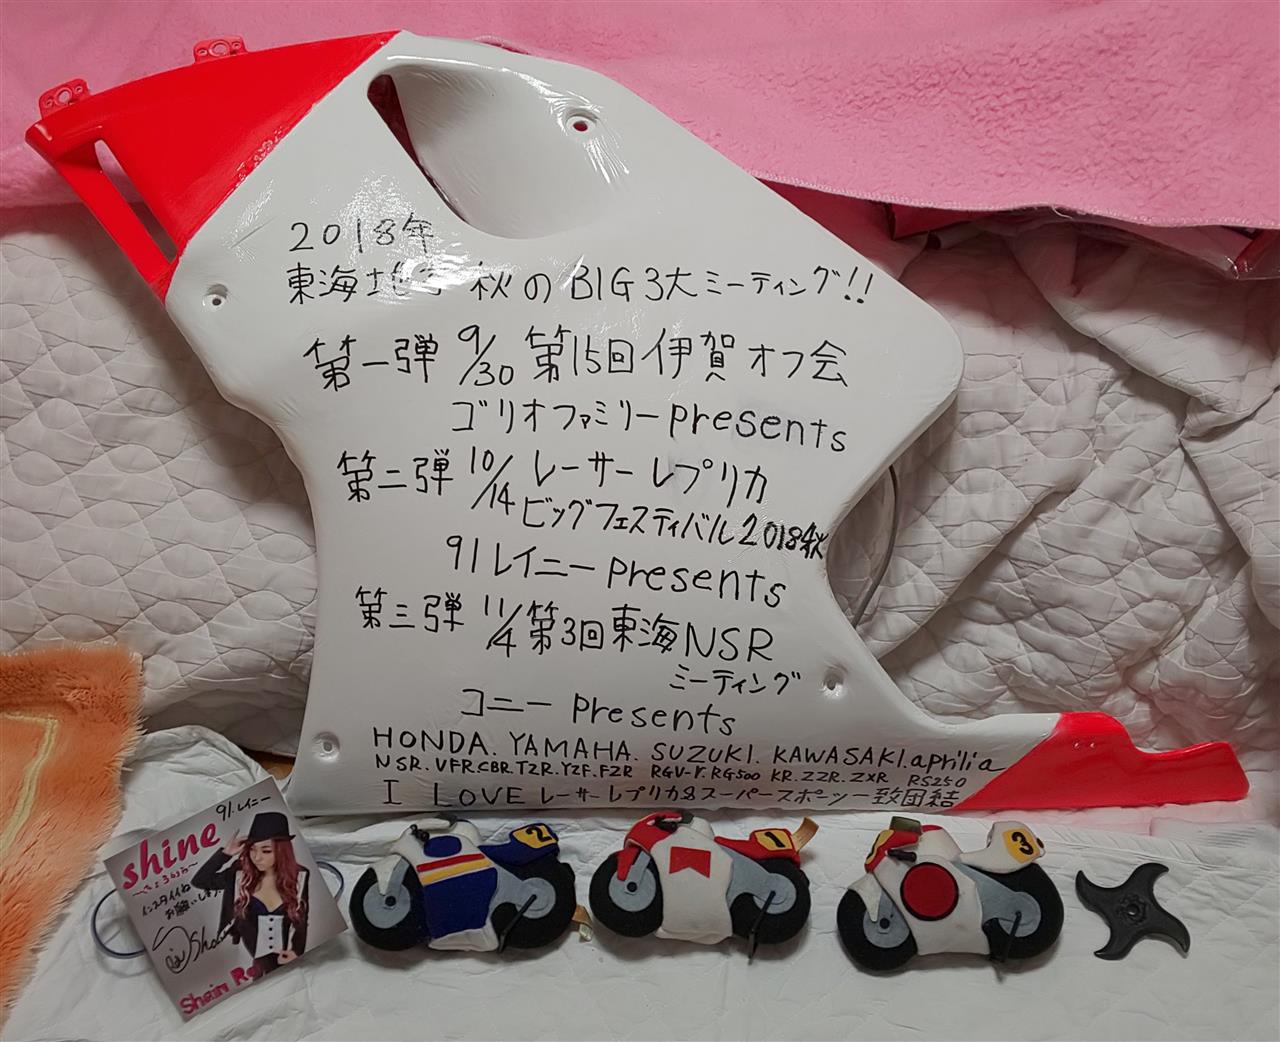 2018年
東海地方 秋のBIG3大ミーティング!!
第一弾 9/30 第15回伊賀オフ会
ゴリオファミリーpresents
第二弾 10/14 レーサーレプリカ
ビッグフェスティバル2018秋
91レイニーpresents
第三弾 11/4 第3回東海NSR
ミーティング
コニー presents
HONDA. YAMAHA. SUZUKI. KAWASAKI. aprilia
NSR.VFR.CBR.TZR.YZF.FZR RGV-Γ.RG500 KR.ZZR.ZXR RS250
I LOVE レーサーレプリカ&スーパースポーツ一致団結
91.レイニー
shine
インスタイイね
お願いします
2
1
3